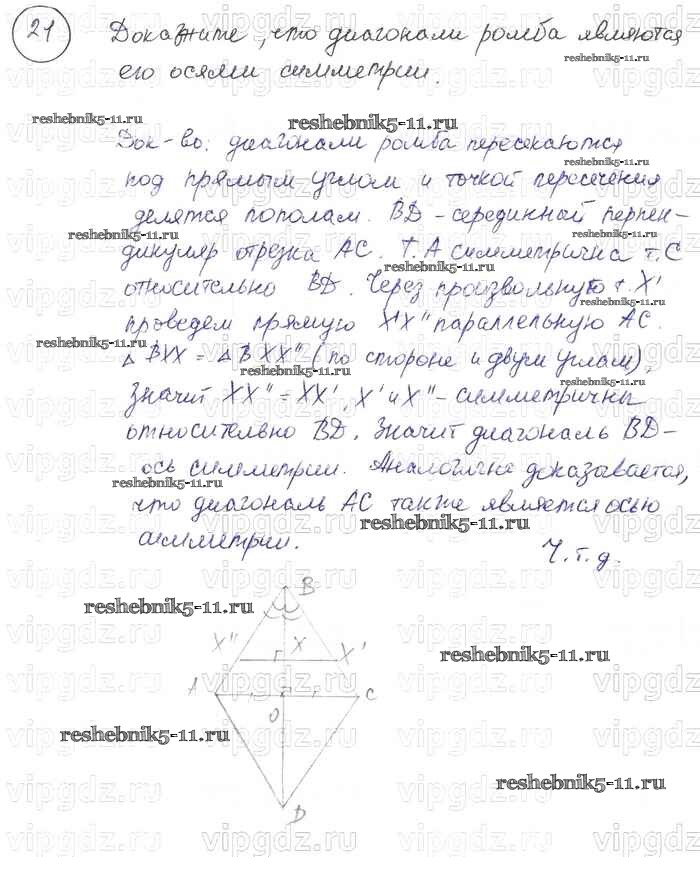 21 Докажите, что диагонали ромба являются
его осями симметрии.
reshebnik5-11.ru
reshebnik5-11.ru
reshebnik5-11.ru
Док-во: диагонали ромба пересекаются
reshebnik5-11.ru
под прямым углом и точкой пересечения
делятся пополам. BD - серединный перпен-
reshebnik5-11.ru
дикуляр отрезка AC. т. A симметрична т. C
reshebnik5-11.ru
относительно BD. Через произвольную т. X'
reshebnik5-11.ru
проведем прямую X'X" параллельную AC.
reshebnik5-11.ru
△ BX'X = △ BXX" (по стороне и двум углам),
reshebnik5-11.ru
значит XX" = XX', X' и X" - симметричны
относительно BD. Значит диагональ BD -
ось симметрии. Аналогично доказывается,
reshebnik5-11.ru
что диагональ AC также является осью
reshebnik5-11.ru
симметрии.
Ч.т.д.
B
reshebnik5-11.ru
X" X X'
reshebnik5-11.ru
A C
O
reshebnik5-11.ru
reshebnik5-11.ru
D
vipgdz.ru